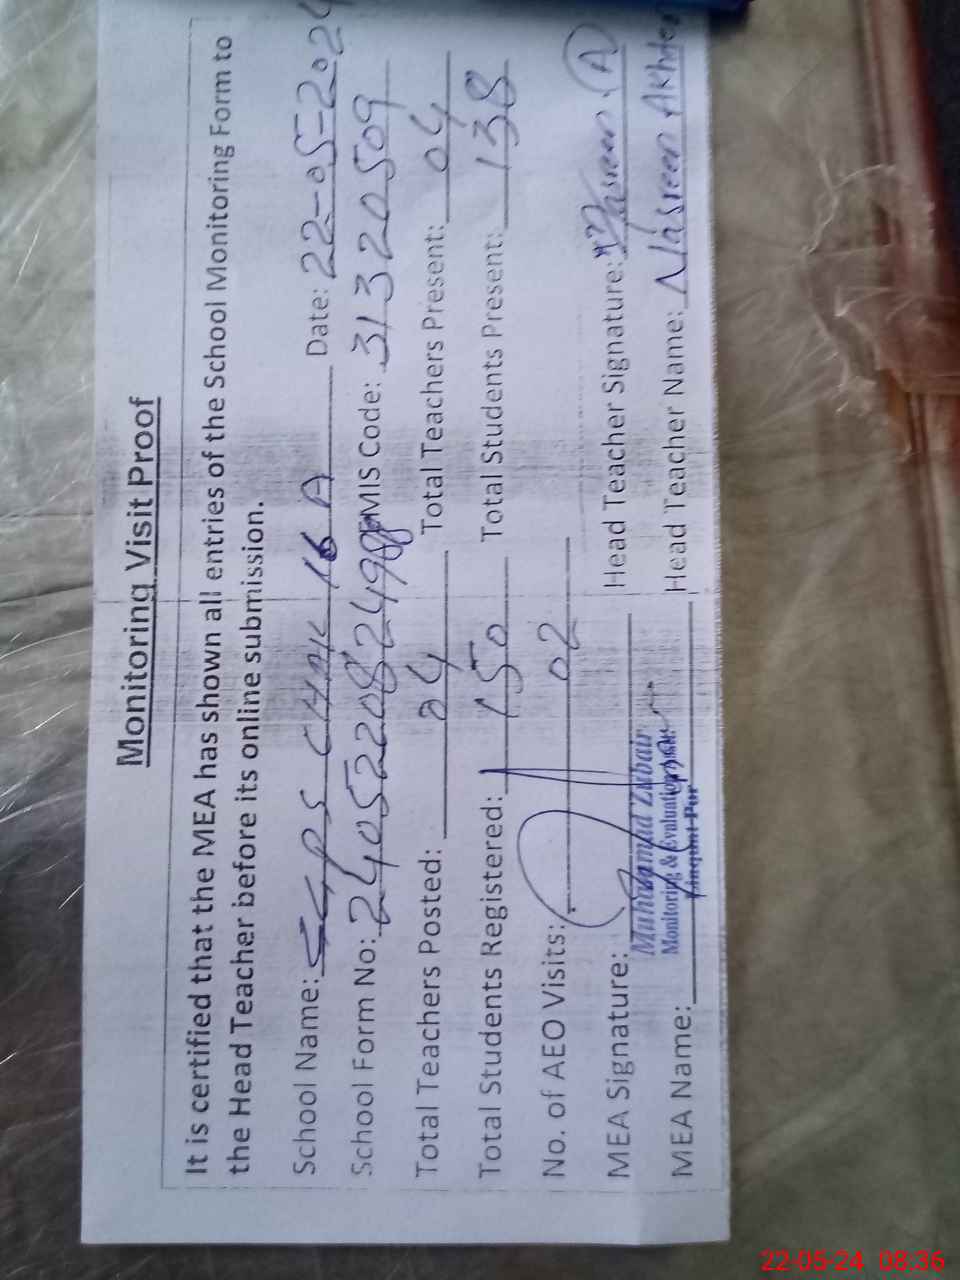 Monitoring Visit Proof
It is certified that the MEA has shown all entries of the School Monitoring Form to
the Head Teacher before its online submission.
School Name: GGPS CHAK 16 A Date: 22-05-202
School Form No: EMIS Code: 31320509
Total Teachers Posted: 04 Total Teachers Present: 04
Total Students Registered: 150 Total Students Present: 138
No. of AEO Visits: 02
MEA Signature: Head Teacher Signature: Nasreen (A)
Muhammad Zubair
Monitoring & Evaluation
MEA Name: Head Teacher Name: Nasreen Akhter
22-05-24 08:36